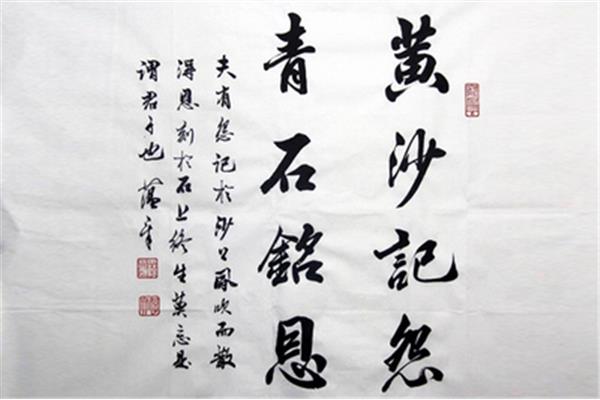 黄沙記怨
青石銘恩
夫有怨記於沙上風吹而散
得恩刻於石上終生莫忘是
謂君子也